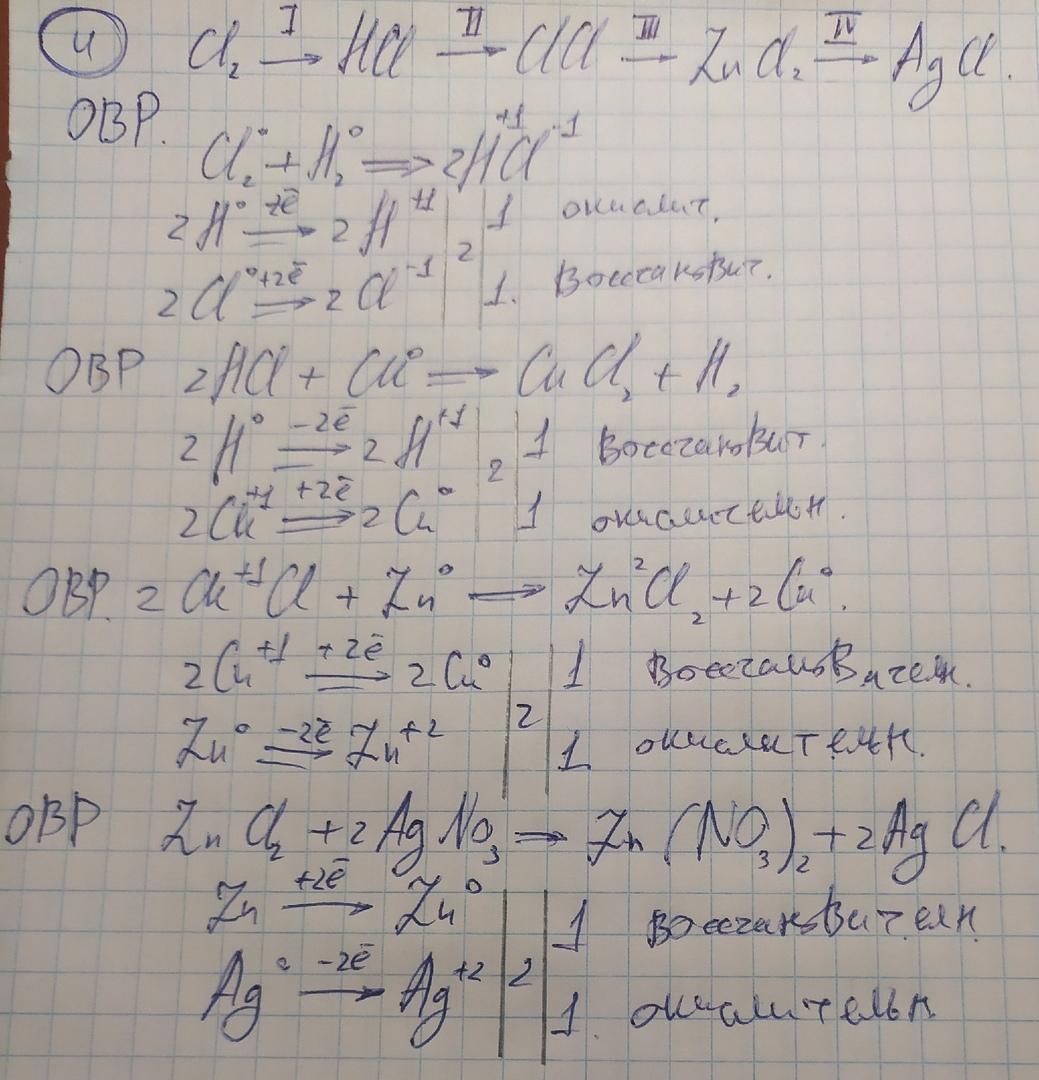 4 Cl₂ →(I) HCl →(II) CuCl →(III) ZnCl₂ →(IV) AgCl.
ОВР.
Cl₂⁰ + H₂⁰ ⇒ 2H⁺¹Cl⁻¹
2H⁰ →(-2ē) 2H⁺¹ | | 1 окислит.
2
2Cl⁰ →(+2ē) 2Cl⁻¹ | | 1. Восстановит.
ОВР 2HCl + Cu⁰ ⇒ CuCl₂ + H₂
2H⁰ →(-2ē) 2H⁺¹ | | 1 Восстановит.
2
2Cu⁺¹ →(+2ē) 2Cu⁰ | | 1 окислительн.
ОВР. 2Cu⁺¹Cl + Zn⁰ ⇒ Zn²Cl₂ + 2Cu⁰.
2Cu⁺¹ →(+2ē) 2Cu⁰ | | 1 Восстановительн.
2
Zn⁰ →(-2ē) Zn⁺² | | 1. окислительн.
ОВР ZnCl₂ + 2AgNO₃ ⇒ Zn(NO₃)₂ + 2AgCl.
Zn →(+2ē) Zn⁰ | | 1 восстановительн.
2
Ag⁰ →(-2ē) Ag⁺² | | 1. окислительн.